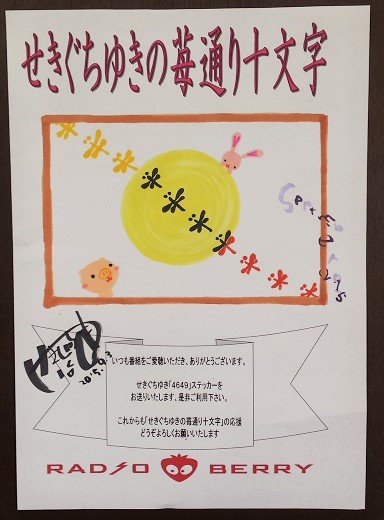 せきぐちゆきの苺通り十文字
いつも番組をご愛聴いただき、ありがとうございます。
せきぐちゆき「4649」ステッカーを
お送りいたします、是非ご利用下さい。
これからも「せきぐちゆきの苺通り十文字」の応援
どうぞよろしくお願いいたします
RADIO BERRY